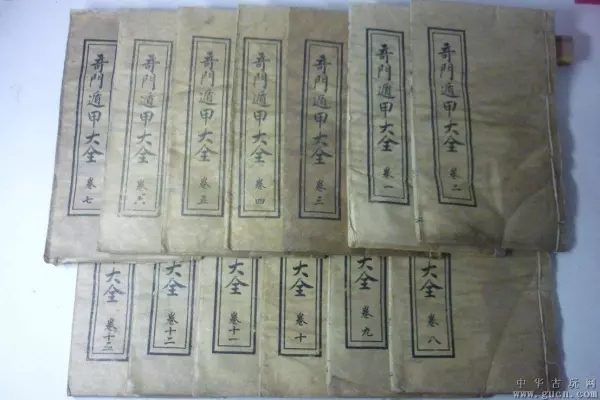 奇門遁甲大全 卷七
奇門遁甲大全 卷六
奇門遁甲大全 卷五
奇門遁甲大全 卷四
奇門遁甲大全 卷三
奇門遁甲大全 卷一
奇門遁甲大全 卷二
大全 卷十三
大全 卷十二
大全 卷十一
大全 卷十
大全 卷九
大全 卷八
中华古玩网
www.gucn.com